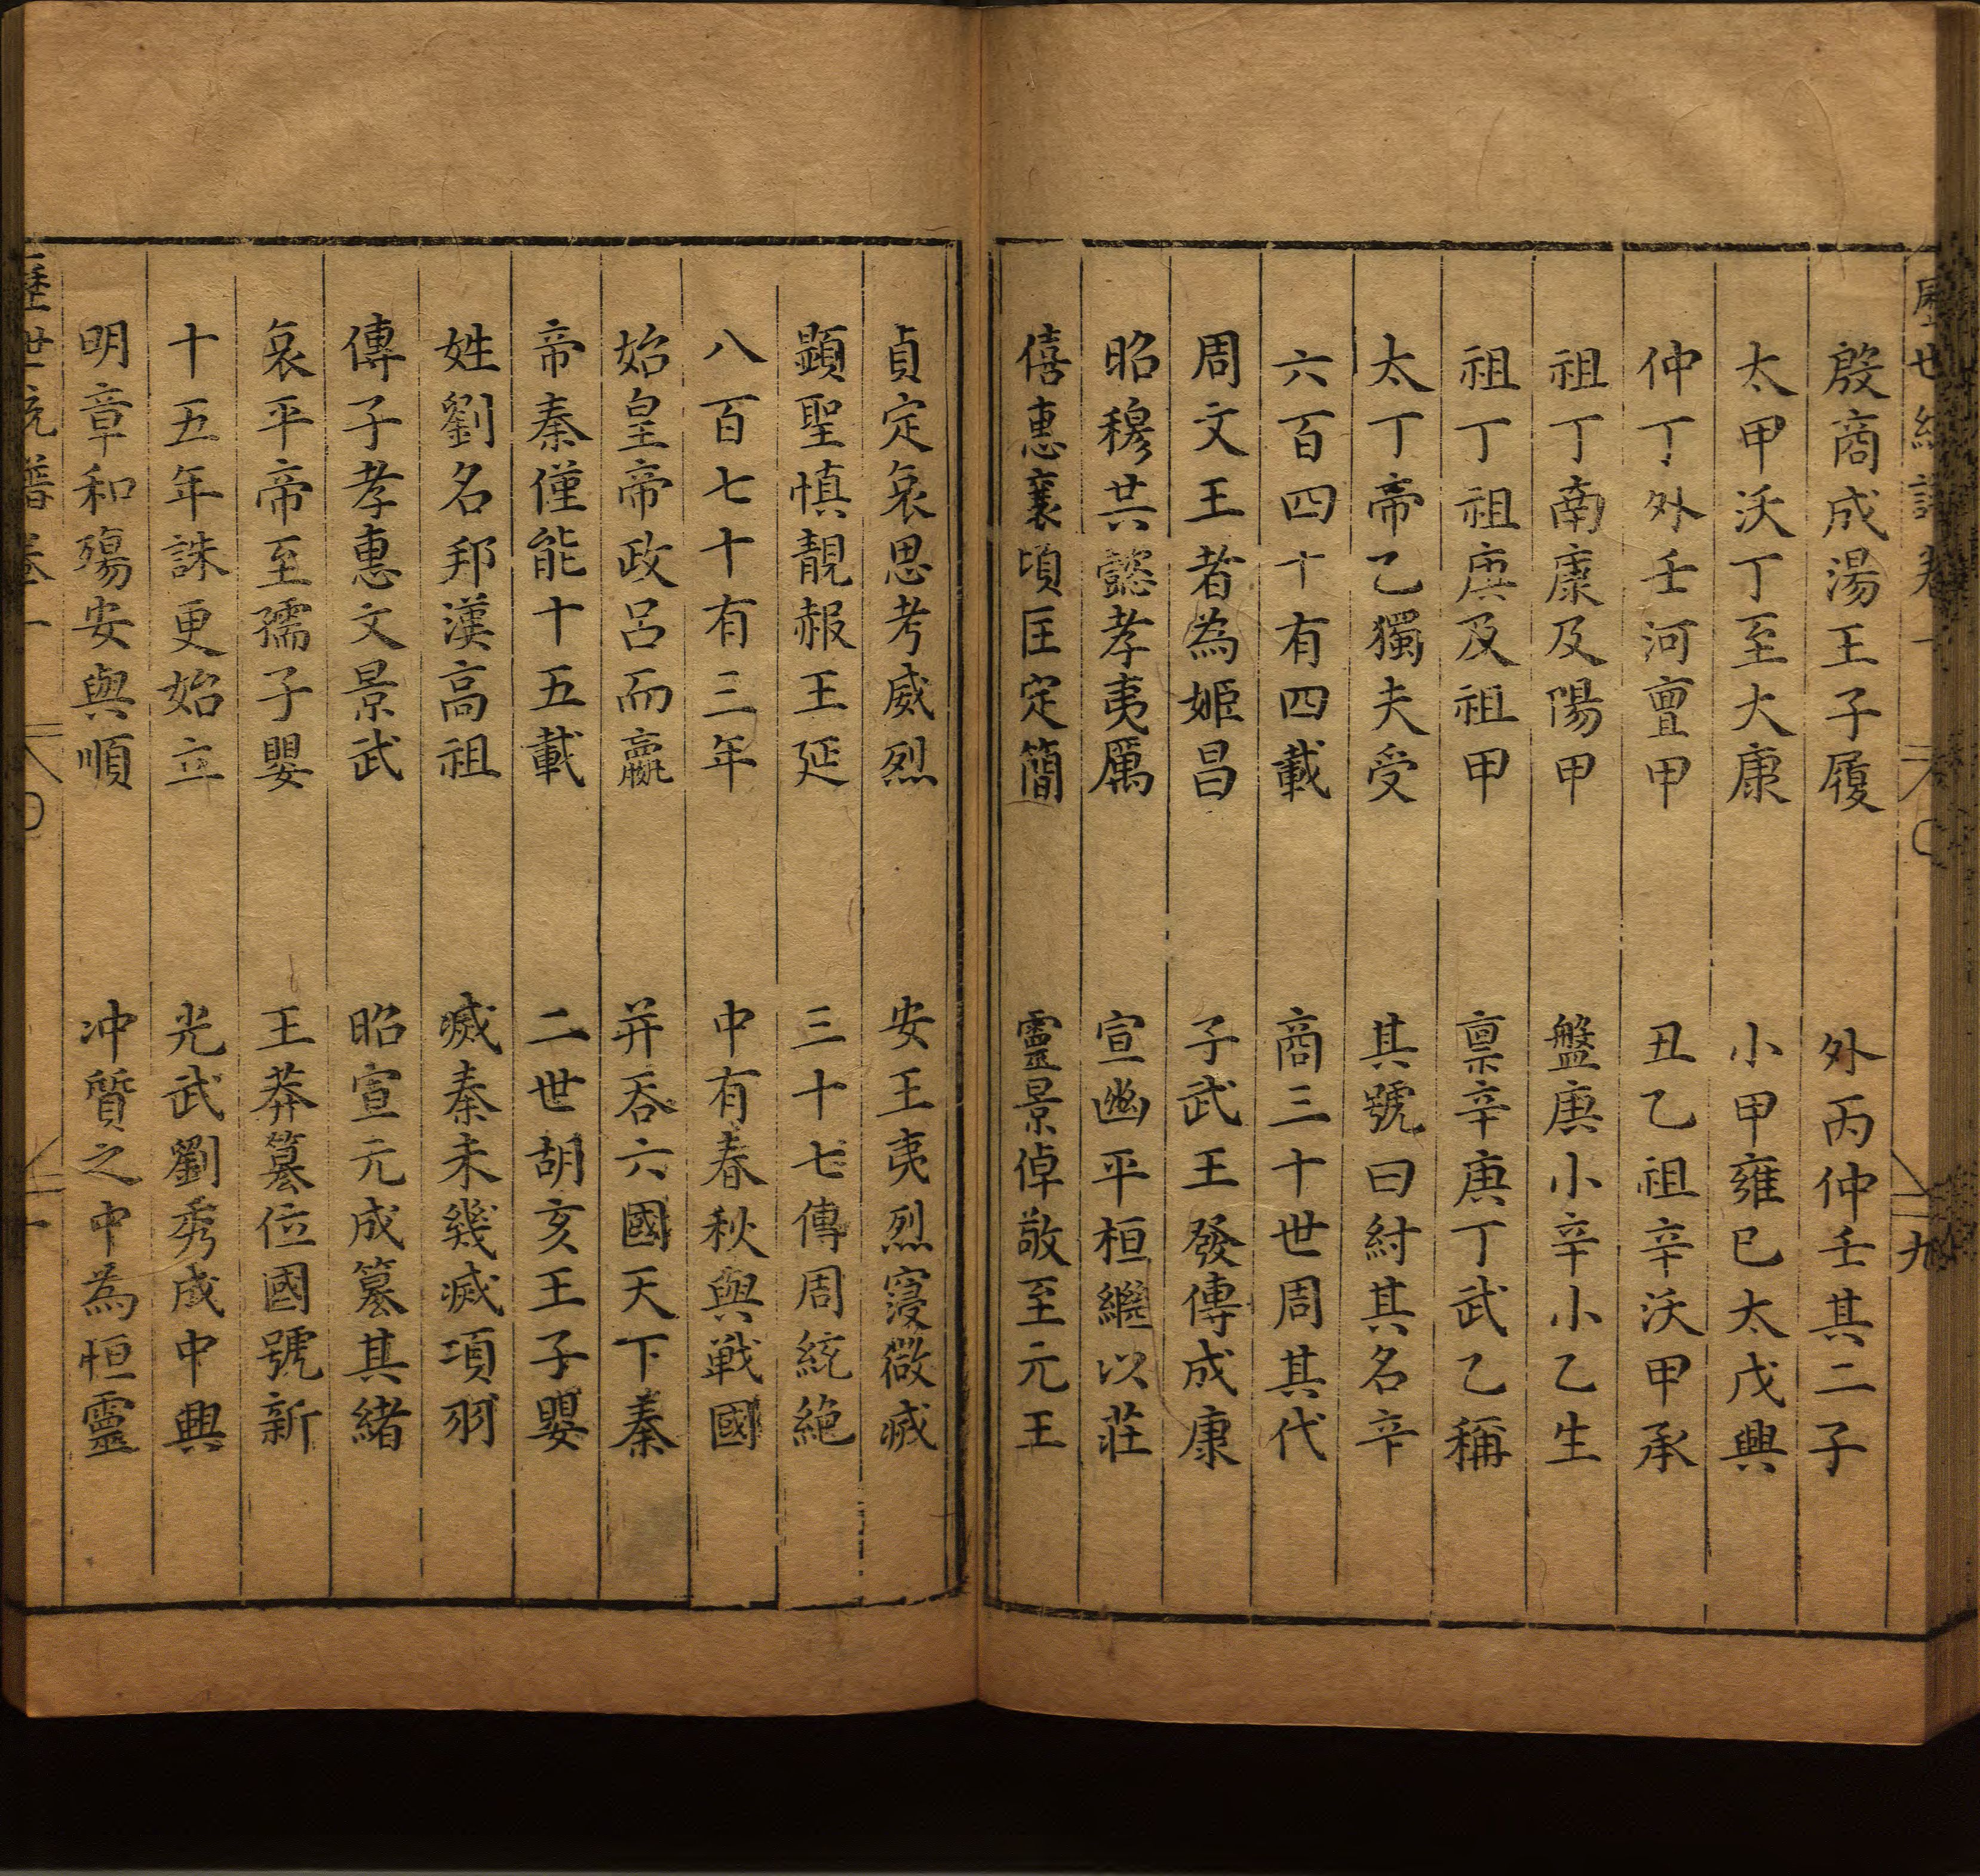 歷世統譜卷一 九
殷商成湯王子履 外丙仲壬其二子
太甲沃丁至大康 小甲雍巳太戊興
仲丁外壬河亶甲 丑乙祖辛沃甲承
祖丁南康及陽甲 盤庚小辛小乙生
祖丁祖庚及祖甲 禀辛庚丁武乙稱
太丁帝乙獨夫受 其號曰紂其名辛
六百四十有四載 商三十世周其代
周文王者為姬昌 子武王發傳成康
昭穆共懿孝夷厲 宣幽平桓繼以莊
僖惠襄頃匡定簡 靈景悼敬至元王
貞定哀思考威烈 安王夷烈寖微滅
顯聖慎靚赧王延 三十七傳周統絶
八百七十有三年 中有春秋與戰國
始皇帝政呂而嬴 并吞六國天下秦
帝秦僅能十五載 二世胡亥王子嬰
姓劉名邦漢高祖 滅秦未幾滅項羽
傳子孝惠文景武 昭宣元成纂其緒
哀平帝至孺子嬰 王莽篡位國號新
十五年誅更始立 光武劉秀成中興
明章和殤安與順 冲質之中為恒靈
歷世統譜卷一